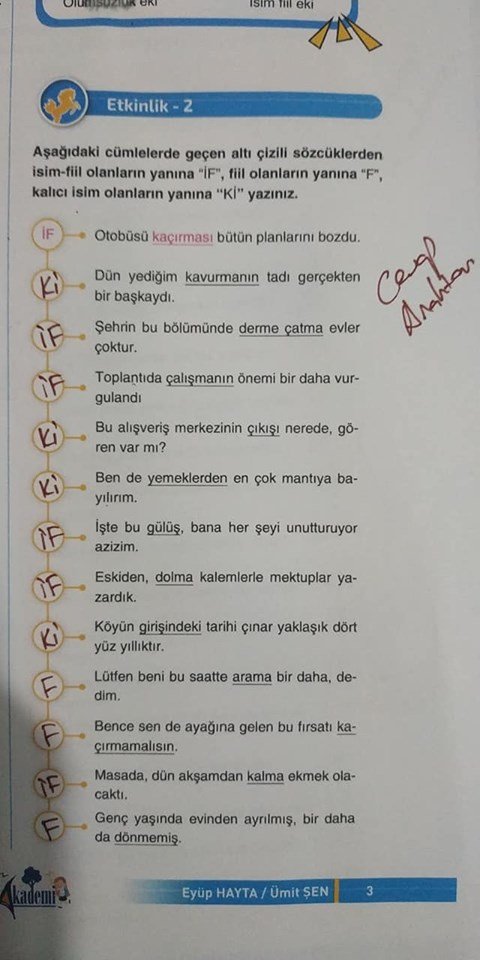 Olumsuzluk eki İsim fiil eki
Etkinlik - 2
Aşağıdaki cümlelerde geçen altı çizili sözcüklerden
isim-fiil olanların yanına “İF”, fiil olanların yanına “F”,
kalıcı isim olanların yanına “Kİ” yazınız.
İF Otobüsü kaçırması bütün planlarını bozdu.
Cevap
Anahtarı
Kİ Dün yediğim kavurmanın tadı gerçekten
bir başkaydı.
İF Şehrin bu bölümünde derme çatma evler
çoktur.
İF Toplantıda çalışmanın önemi bir daha vur-
gulandı
Kİ Bu alışveriş merkezinin çıkışı nerede, gö-
ren var mı?
Kİ Ben de yemeklerden en çok mantıya ba-
yılırım.
İF İşte bu gülüş, bana her şeyi unutturuyor
azizim.
İF Eskiden, dolma kalemlerle mektuplar ya-
zardık.
Kİ Köyün girişindeki tarihi çınar yaklaşık dört
yüz yıllıktır.
F Lütfen beni bu saatte arama bir daha, de-
dim.
F Bence sen de ayağına gelen bu fırsatı ka-
çırmamalısın.
İF Masada, dün akşamdan kalma ekmek ola-
caktı.
F Genç yaşında evinden ayrılmış, bir daha
da dönmemiş.
Akademi Eyüp HAYTA / Ümit ŞEN 3